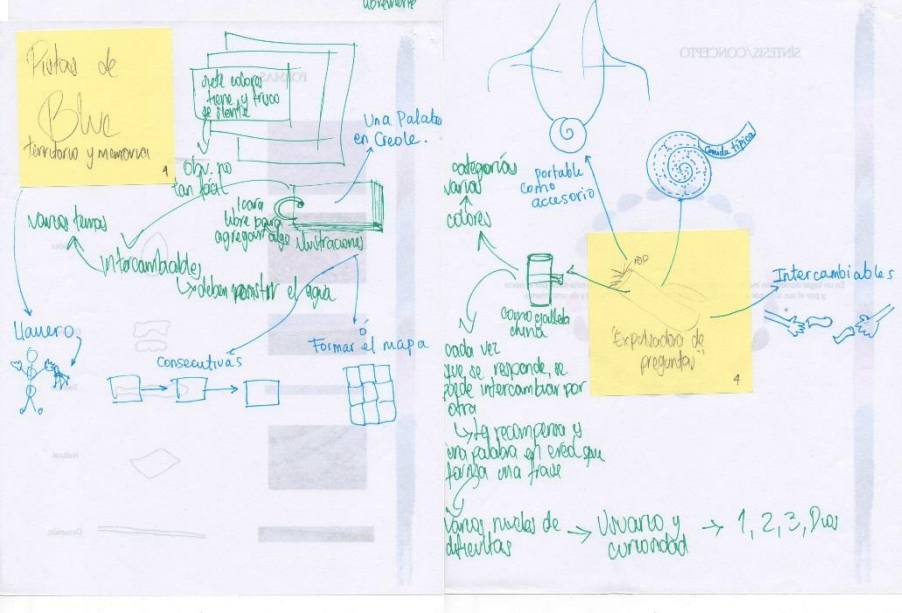 libremente
Pistas de
Blue
territorio y memoria
4
siete colores
tiene y truco
se siente
FORMAS
Una Palabra
en Creole.
obv. no
tan fácil
1 cara
libre para
agregar algo
ilustraciones
varios temas
intercambiables
deben resistir el agua
Llavero
Consecutivas
ó
Formar el mapa
Natural
SÍNTESIS/CONCEPTO
portable
como
accesorio
Comida típica
categorías
varias
colores
POP
Intercambiables
como galleta
china
"Expulsadora de
preguntas"
4
cada vez
que se responde, se
puede intercambiar por
otra
La recompensa es
una palabra en creol que
forma una frase
Varios niveles de
dificultas
Usuario y
curiosidad
1, 2, 3, Dios